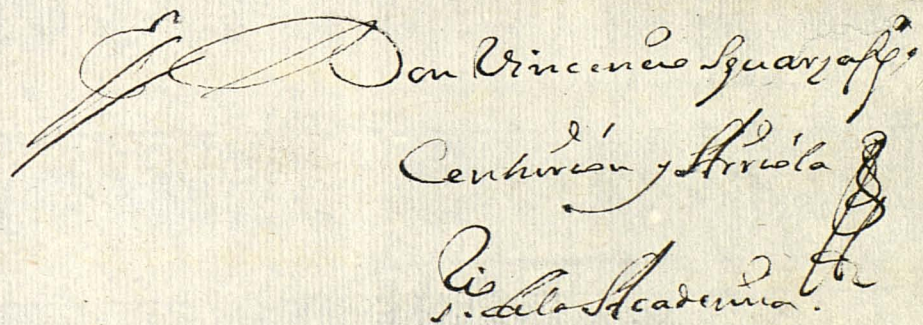 Don Vincencio Squarzafigo
Centurion y Arriola
S.rio de la Academia.